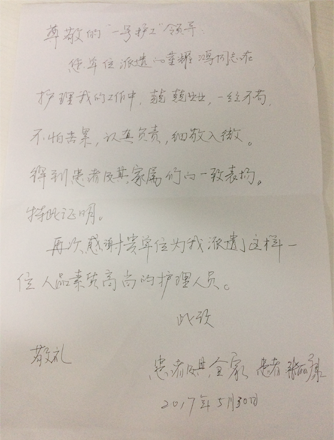 尊敬的“一号护工”领导
您单位派遣 冯 同志在
护理我的工作中，兢兢业业，一丝不苟，
不怕苦累，认真负责，细致入微。
得到患者及其家属的一致表扬。
特此证明。
再次感谢贵单位为我派遣了这样一
位人品素质高尚的护理人员。
此致
敬礼
患者及其全家 患者
2017年5月30日